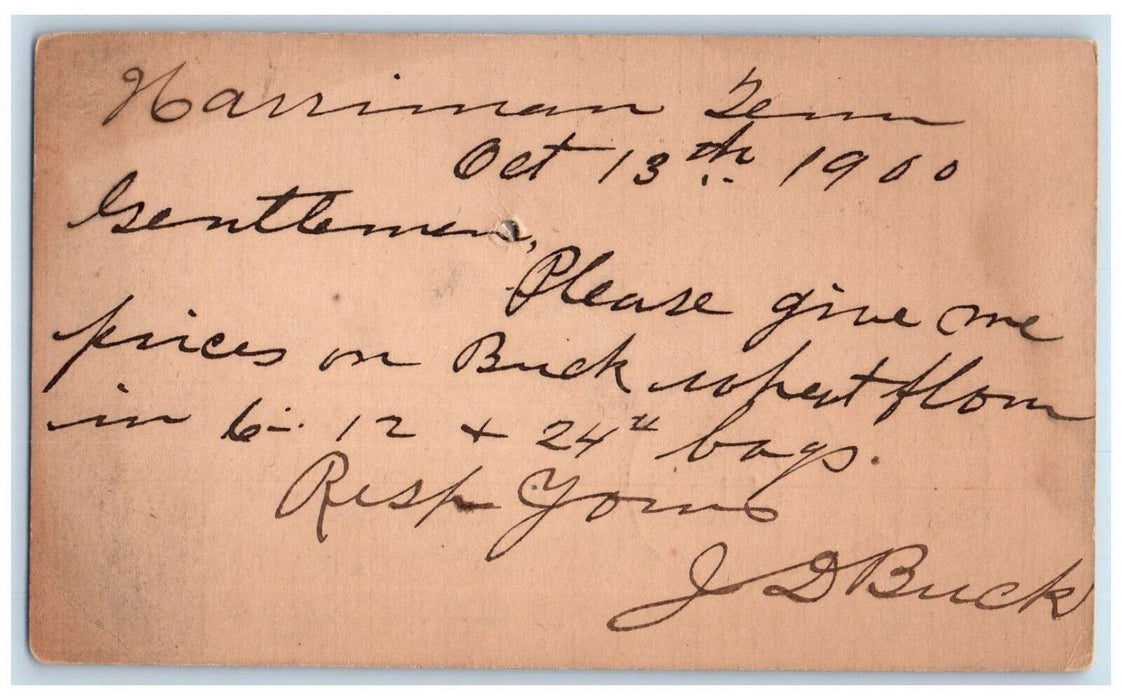 Harriman Tenn
Oct 13th 1900
Gentlemen,
Please give me
prices on Buck wheat flour
in 6- 12 + 24" bags.
Resp Yours
J D Buck